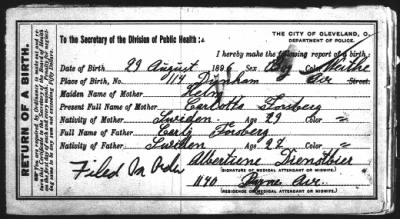 THE CITY OF CLEVELAND, O.
DEPARTMENT OF POLICE.
To the Secretary of the Division of Public Health:
I hereby make the following report of a birth.
Date of Birth 29 August 1896 Sex Boy Color White
Place of Birth, No. 114 Dunham Av Street.
Maiden Name of Mother
Present Full Name of Mother Carlotta Forsberg
Nativity of Mother Sweden Age 29 Color "
Full Name of Father Carl Forsberg
Nativity of Father Sweden Age 27 Color "
Filed In Order Albertiene Dienstbier
SIGNATURE OF MEDICAL ATTENDANT OR MIDWIFE.
1140 Payne Av.
(RESIDENCE OF MEDICAL ATTENDANT OR MIDWIFE.)
RETURN OF A BIRTH.